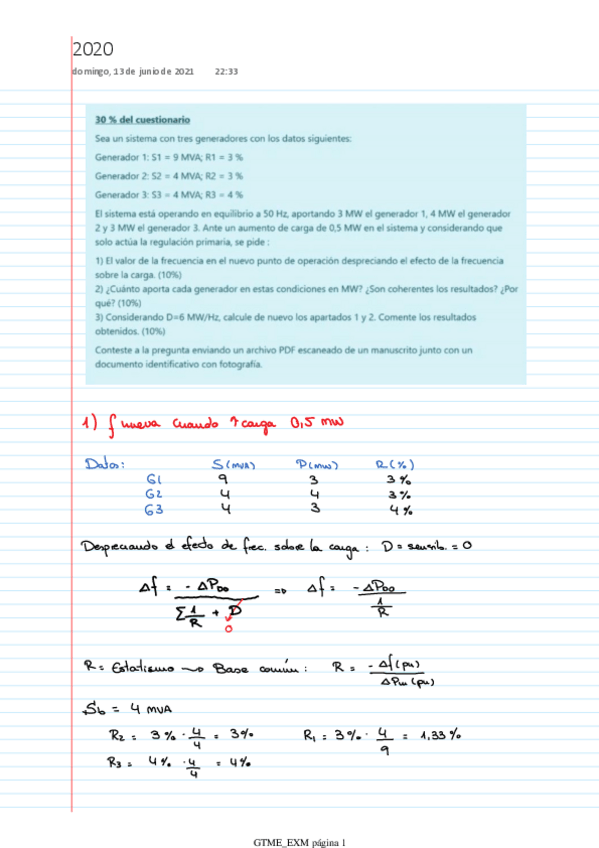 2020
domingo, 13 de junio de 2021 22:33
30 % del cuestionario
Sea un sistema con tres generadores con los datos siguientes:
Generador 1: S1 = 9 MVA; R1 = 3 %
Generador 2: S2 = 4 MVA; R2 = 3 %
Generador 3: S3 = 4 MVA; R3 = 4 %
El sistema está operando en equilibrio a 50 Hz, aportando 3 MW el generador 1, 4 MW el generador
2 y 3 MW el generador 3. Ante un aumento de carga de 0,5 MW en el sistema y considerando que
solo actúa la regulación primaria, se pide :
1) El valor de la frecuencia en el nuevo punto de operación despreciando el efecto de la frecuencia
sobre la carga. (10%)
2) ¿Cuánto aporta cada generador en estas condiciones en MW? ¿Son coherentes los resultados? ¿Por
qué? (10%)
3) Considerando D=6 MW/Hz, calcule de nuevo los apartados 1 y 2. Comente los resultados
obtenidos. (10%)
Conteste a la pregunta enviando un archivo PDF escaneado de un manuscrito junto con un
documento identificativo con fotografía.
1) f nueva cuando ↑ carga 0,5 MW
Datos: S(MVA) P(MW) R(%)
G1 9 3 3%
G2 4 4 3%
G3 4 3 4%
Despreciando el efecto de frec. sobre la carga: D = sensib. = 0
Δf = -ΔPD0 / (Σ 1/R + D) => Δf = -ΔPD0 / (1/R)
0
R = Estatismo → Base común: R = -Δf(pu) / ΔPm(pu)
Sb = 4 MVA
R2 = 3% · 4/4 = 3% R1 = 3% · 4/9 = 1,33%
R3 = 4% · 4/4 = 4%
GTME_EXM página 1